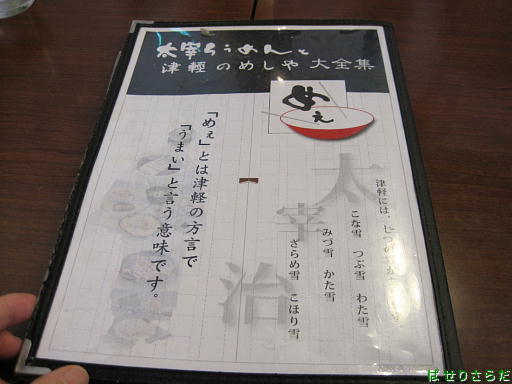 太宰らうめんと
津軽のめしや 大全集
めぇ
「めぇ」とは津軽の方言で
「うまい」と言う意味です。
太宰治
津軽には、七つの
こな雪 つぶ雪 わた雪
みづ雪 かた雪
ざらめ雪 こほり雪
ぱせりさらだ